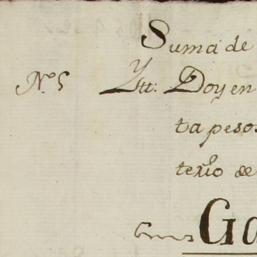 Suma de
N.º 5 Ytt: Doy en
ta pesos
texto de
Ga